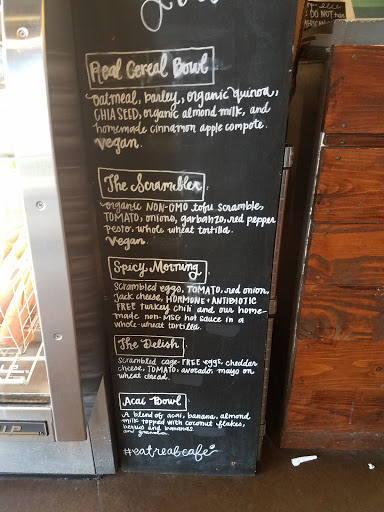 DO NOT
Real Cereal Bowl
oatmeal, barley, organic quinoa,
CHIA SEED, organic almond milk, and
homemade cinnamon apple compote.
vegan.
The Scrambler
organic NON-GMO tofu scramble,
TOMATO, onions, garbanzo, red pepper
pesto, whole wheat tortilla.
vegan.
Spicy Morning
Scrambled eggs, TOMATO, red onion,
jack cheese, HORMONE + ANTIBIOTIC
FREE turkey chili and our home-
made non-MSG hot sauce in a
whole-wheat tortilla.
The Delish
Scrambled cage-FREE eggs, cheddar
cheese, TOMATO, avocado, mayo on
wheat bread.
Acai Bowl
A blend of acai, banana, almond
milk topped with coconut flakes,
berries and bananas.
and granola.
#eatrealcafe